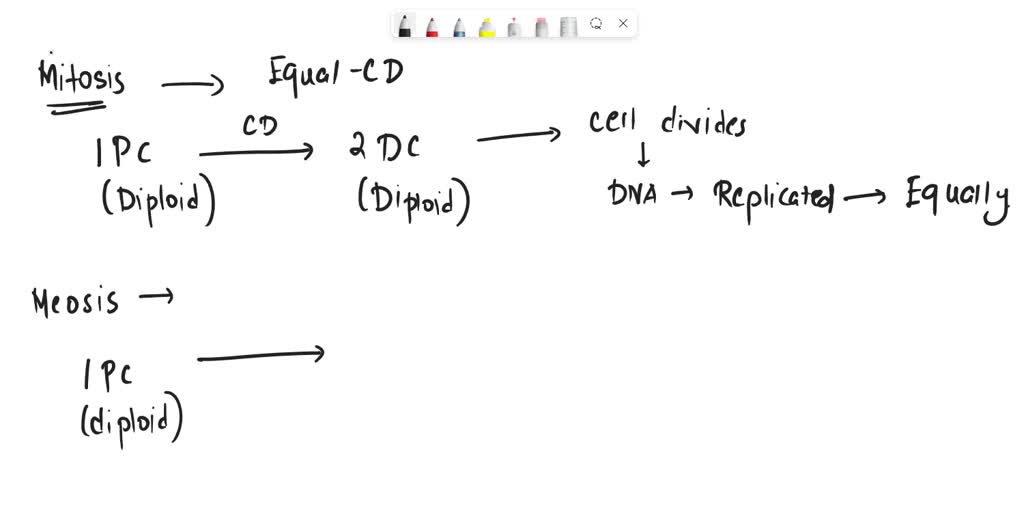 Mitosis → Equal-CD
1 PC CD → 2 DC → cell divides
(Diploid) (Diploid) ↓ DNA → Replicated → Equally
Meosis →
1 PC →
(diploid)